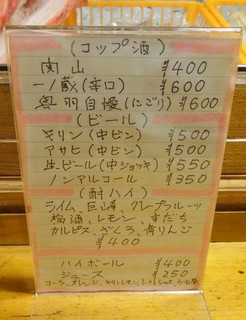 (コップ酒)
関山 ¥400
一ノ蔵(辛口) ¥600
奥羽自慢(にごり) ¥600
(ビール)
キリン(中ビン) ¥500
アサヒ(中ビン) ¥500
生ビール(中ジョッキ) ¥550
ノンアルコール ¥350
(酎ハイ)
ライム、巨峰、グレープフルーツ
梅酒、レモン、すだち
カルピス、ざくろ、青りんご
¥400
ハイボール ¥400
ジュース ¥250
コーラ、オレンジ、